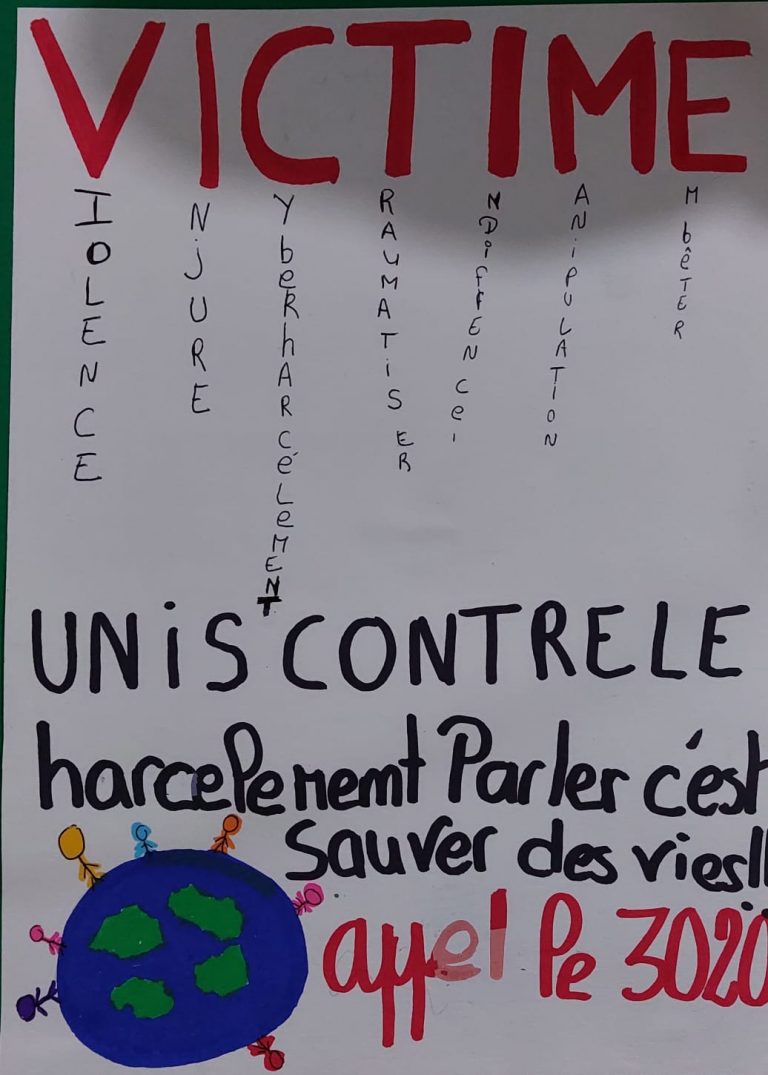 VICTIME
IOLENCE
NjURE
YbeRhARCéLeMENT
RAUMATiSER
NDiFFENCe
ANiPULATION
MbêTER
UNiS CONTRE LE
harcelememt Parler c'est
sauver des vies!!
appel le 3020